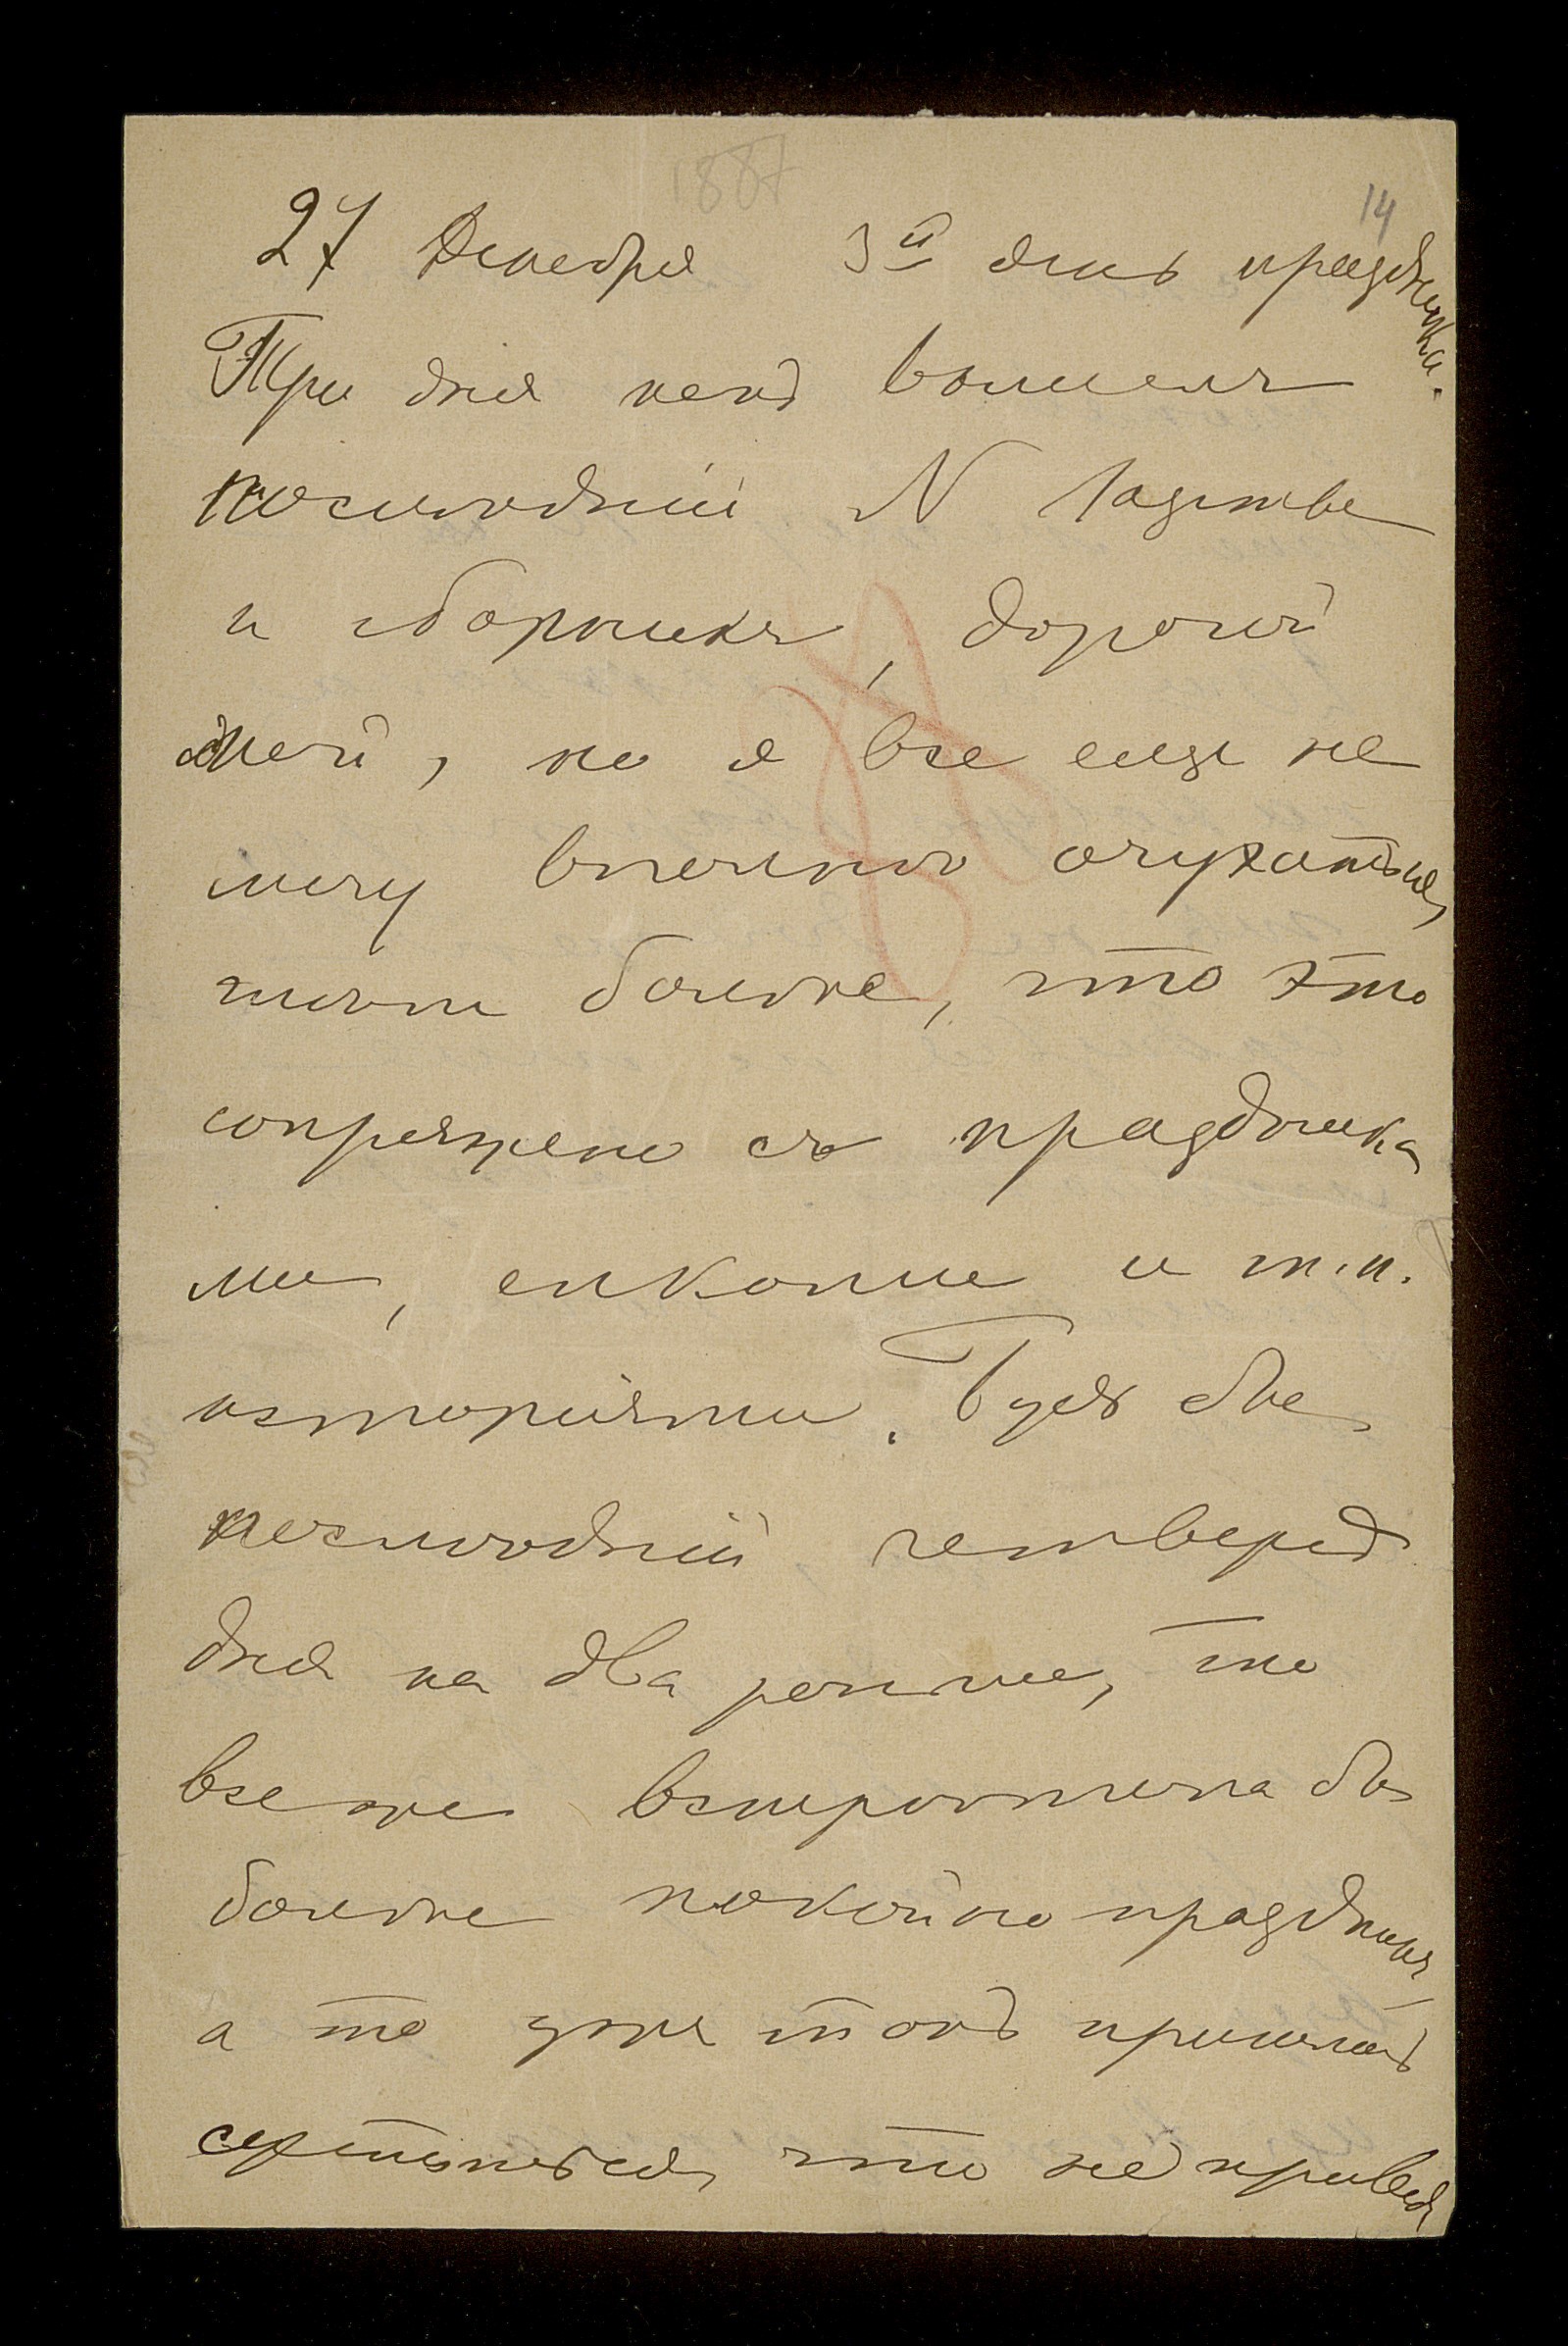 1887
14
27 Декабря 3й день праздника.
Три дня какъ вышелъ
послѣдній N Газеты
и сборникъ, дорогой
мой, но я все еще не
могу вполнѣ очухаться,
тѣмъ болѣе, что это
сопряжено съ праздника
ми, елкою и т.п.
исторіями. Будь бы
послѣдній четвергъ
дня на два раньше, то
все же встрѣтила бы
болѣе покойно праздникъ,
а то ужъ такъ пришлось
что не приведи